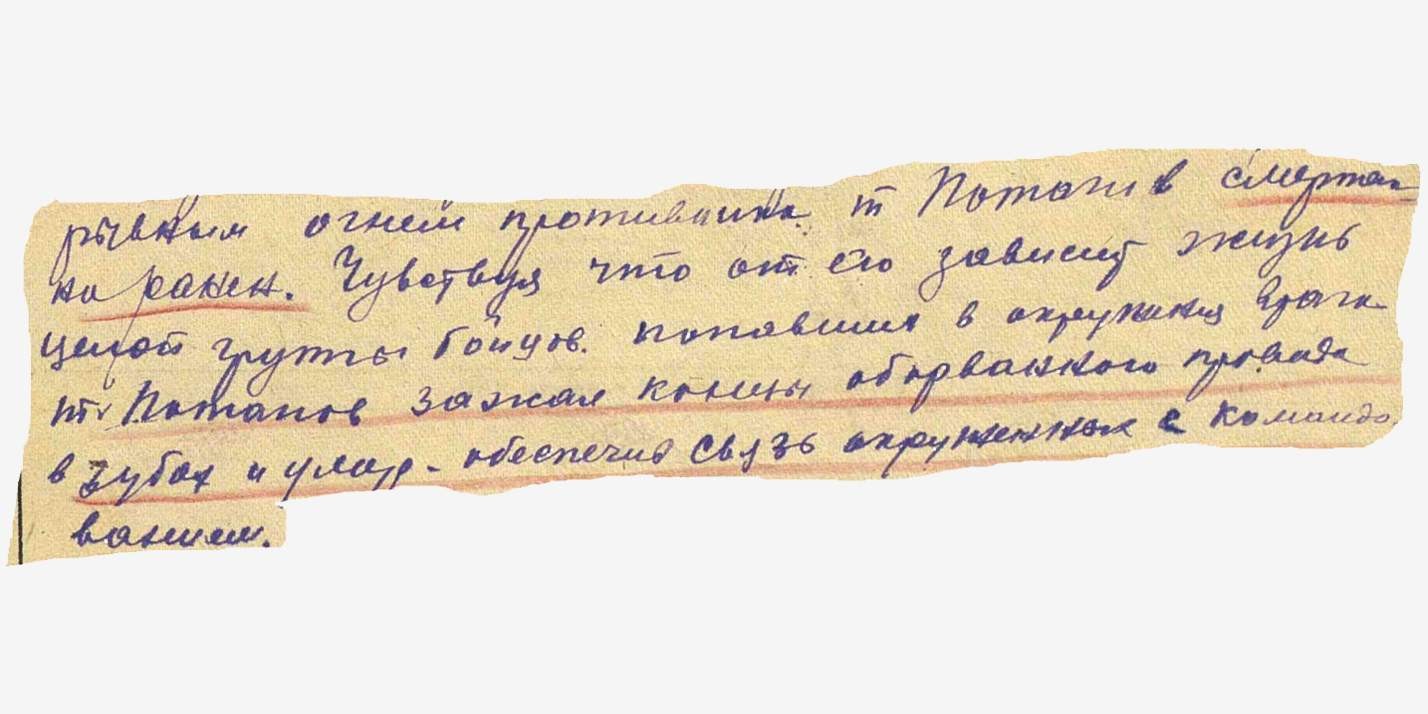 рывным огнем противника т Потапов смертель
но ранен. Чувствуя что от его зависит жизнь
целой группы бойцов. попавших в окружения врага
тт Потапов зажал концы оборванного провода
в зубах и умер - обеспечив связь окруженных с командо
ванием.